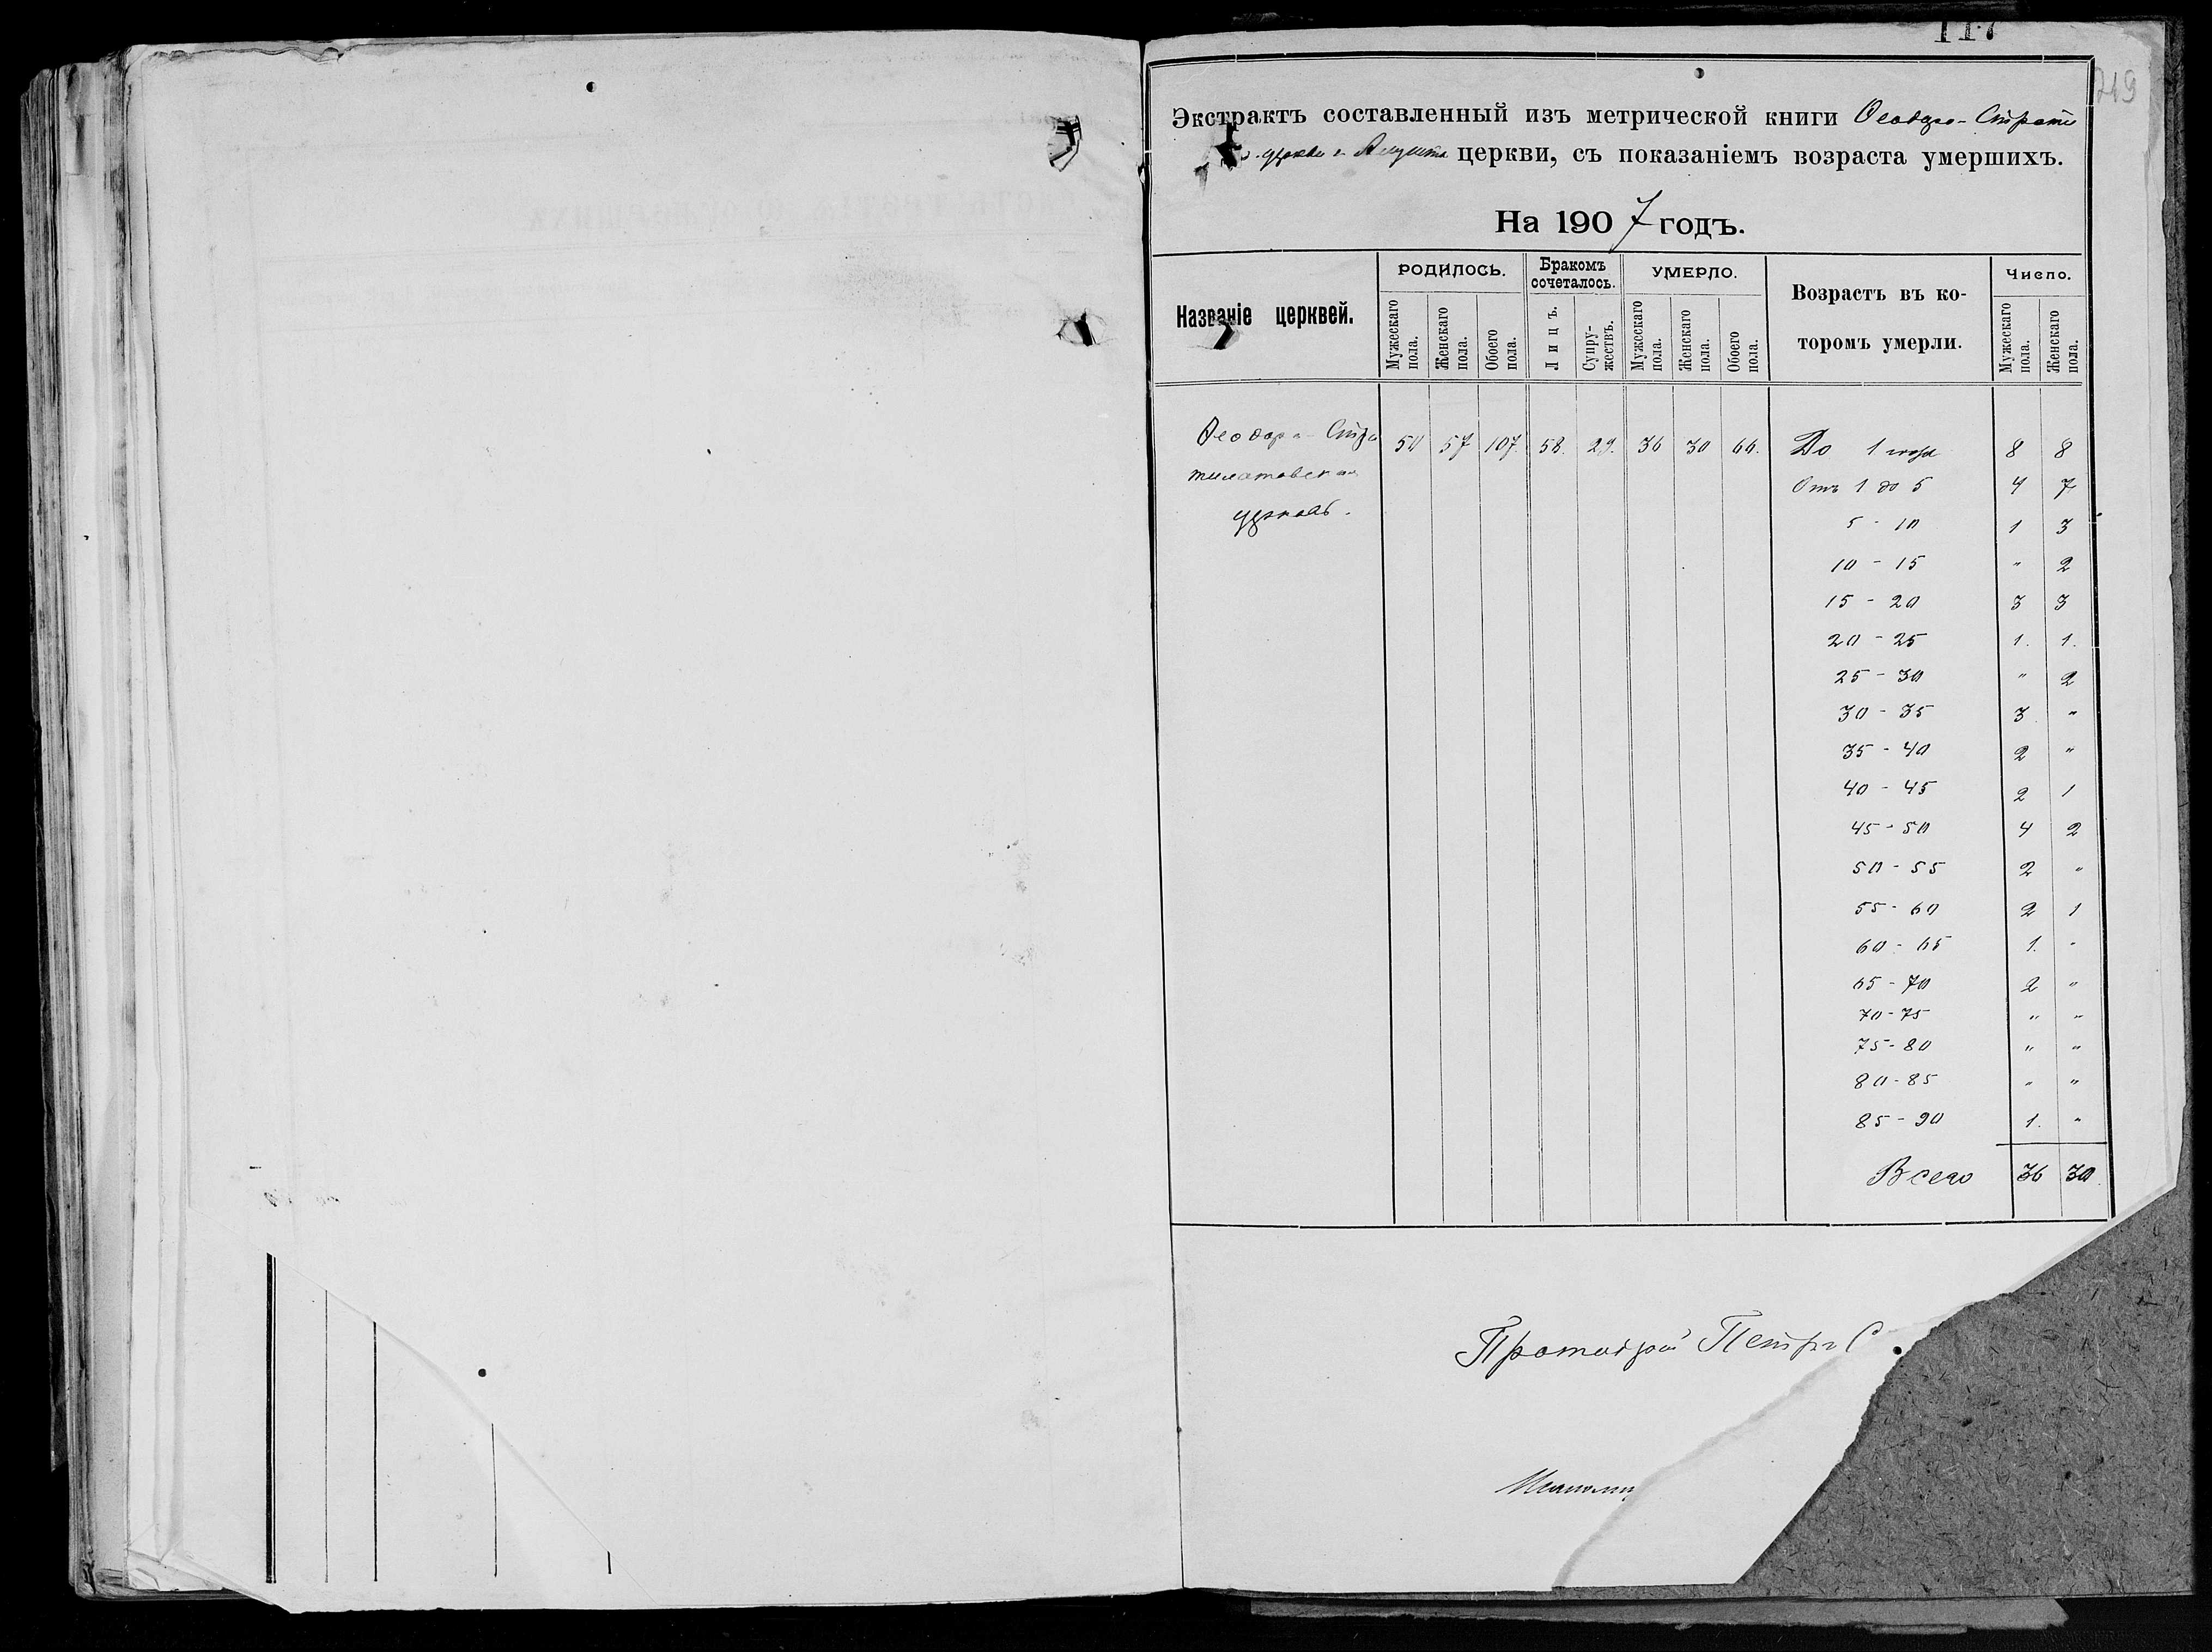 117
219
Экстрактъ составленный изъ метрической книги Ѳеодоро-Страти
церкви г. Алушта церкви, съ показаніемъ возраста умершихъ.
На 1907 годъ.
Названіе церквей.
РОДИЛОСЬ.
Мужескаго пола.
Женскаго пола.
Обоего пола.
Бракомъ сочеталось.
Лицъ.
Супружествъ.
УМЕРЛО.
Мужескаго пола.
Женскаго пола.
Обоего пола.
Возрастъ въ ко-
торомъ умерли.
Число.
Мужескаго пола.
Женскаго пола.
Ѳеодоро-Стра 50 57 107. 58. 29. 36 30 66. До 1 года 8 8
тилатовская Отъ 1 до 5 4 7
церковь. 5 - 10 1 3
10 - 15 " 2
15 - 20 3 3
20 - 25 1. 1.
25 - 30 " 2
30 - 35 3 "
35 - 40 2 "
40 - 45 2 1
45 - 50 4 2
50 - 55 2 "
55 - 60 2 1
60 - 65 1. "
65 - 70 2 "
70 - 75 " "
75 - 80 " "
80 - 85 " "
85 - 90 1. "
Всего 36 30.
Протоіерей Петръ С